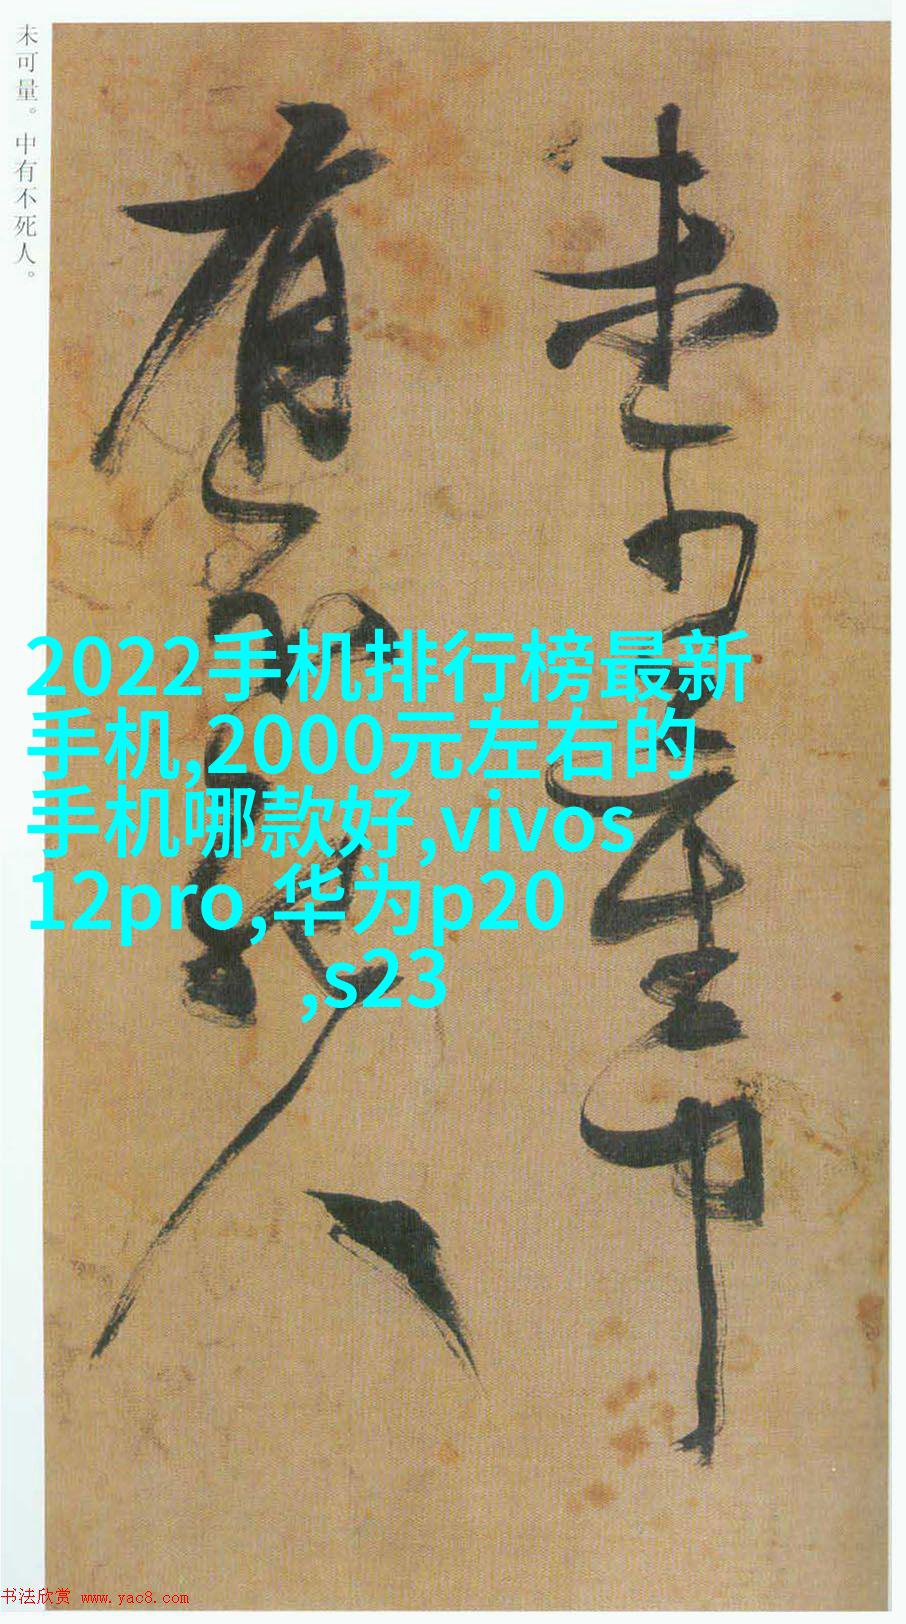 未可量。中有不死人。
未可量中
有不死人
2022手机排行榜最新
手机,2000元左右的
手机哪款好,vivos
12pro,华为p20
,s23
书法欣赏 www.yac8.com